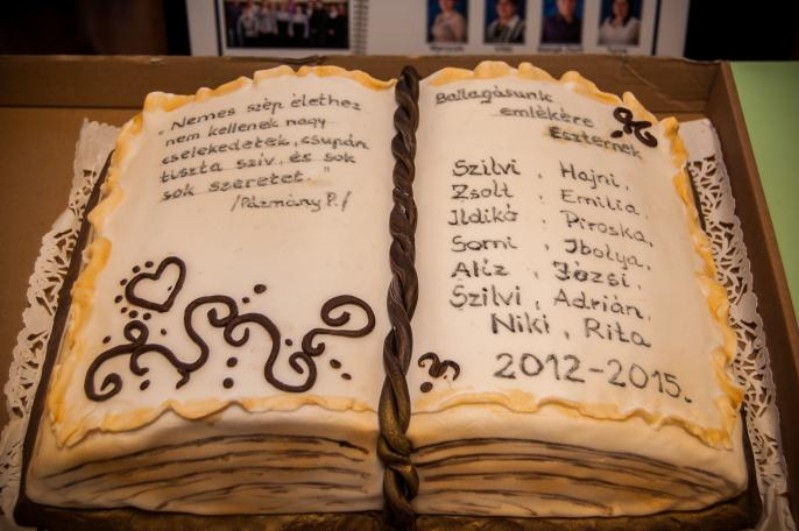 "Nemes szép élethez
nem kellenek nagy
cselekedetek, csupán
tiszta szív, és sok
sok szeretet."
/Pázmány P./
Ballagásunk
emlékére
Eszternek
Szilvi, Hajni,
Zsolt, Emilia,
Ildikó, Piroska,
Somi, Ibolya,
Aliz, Józsi,
Szilvi, Adrián,
Niki, Rita
2012-2015.